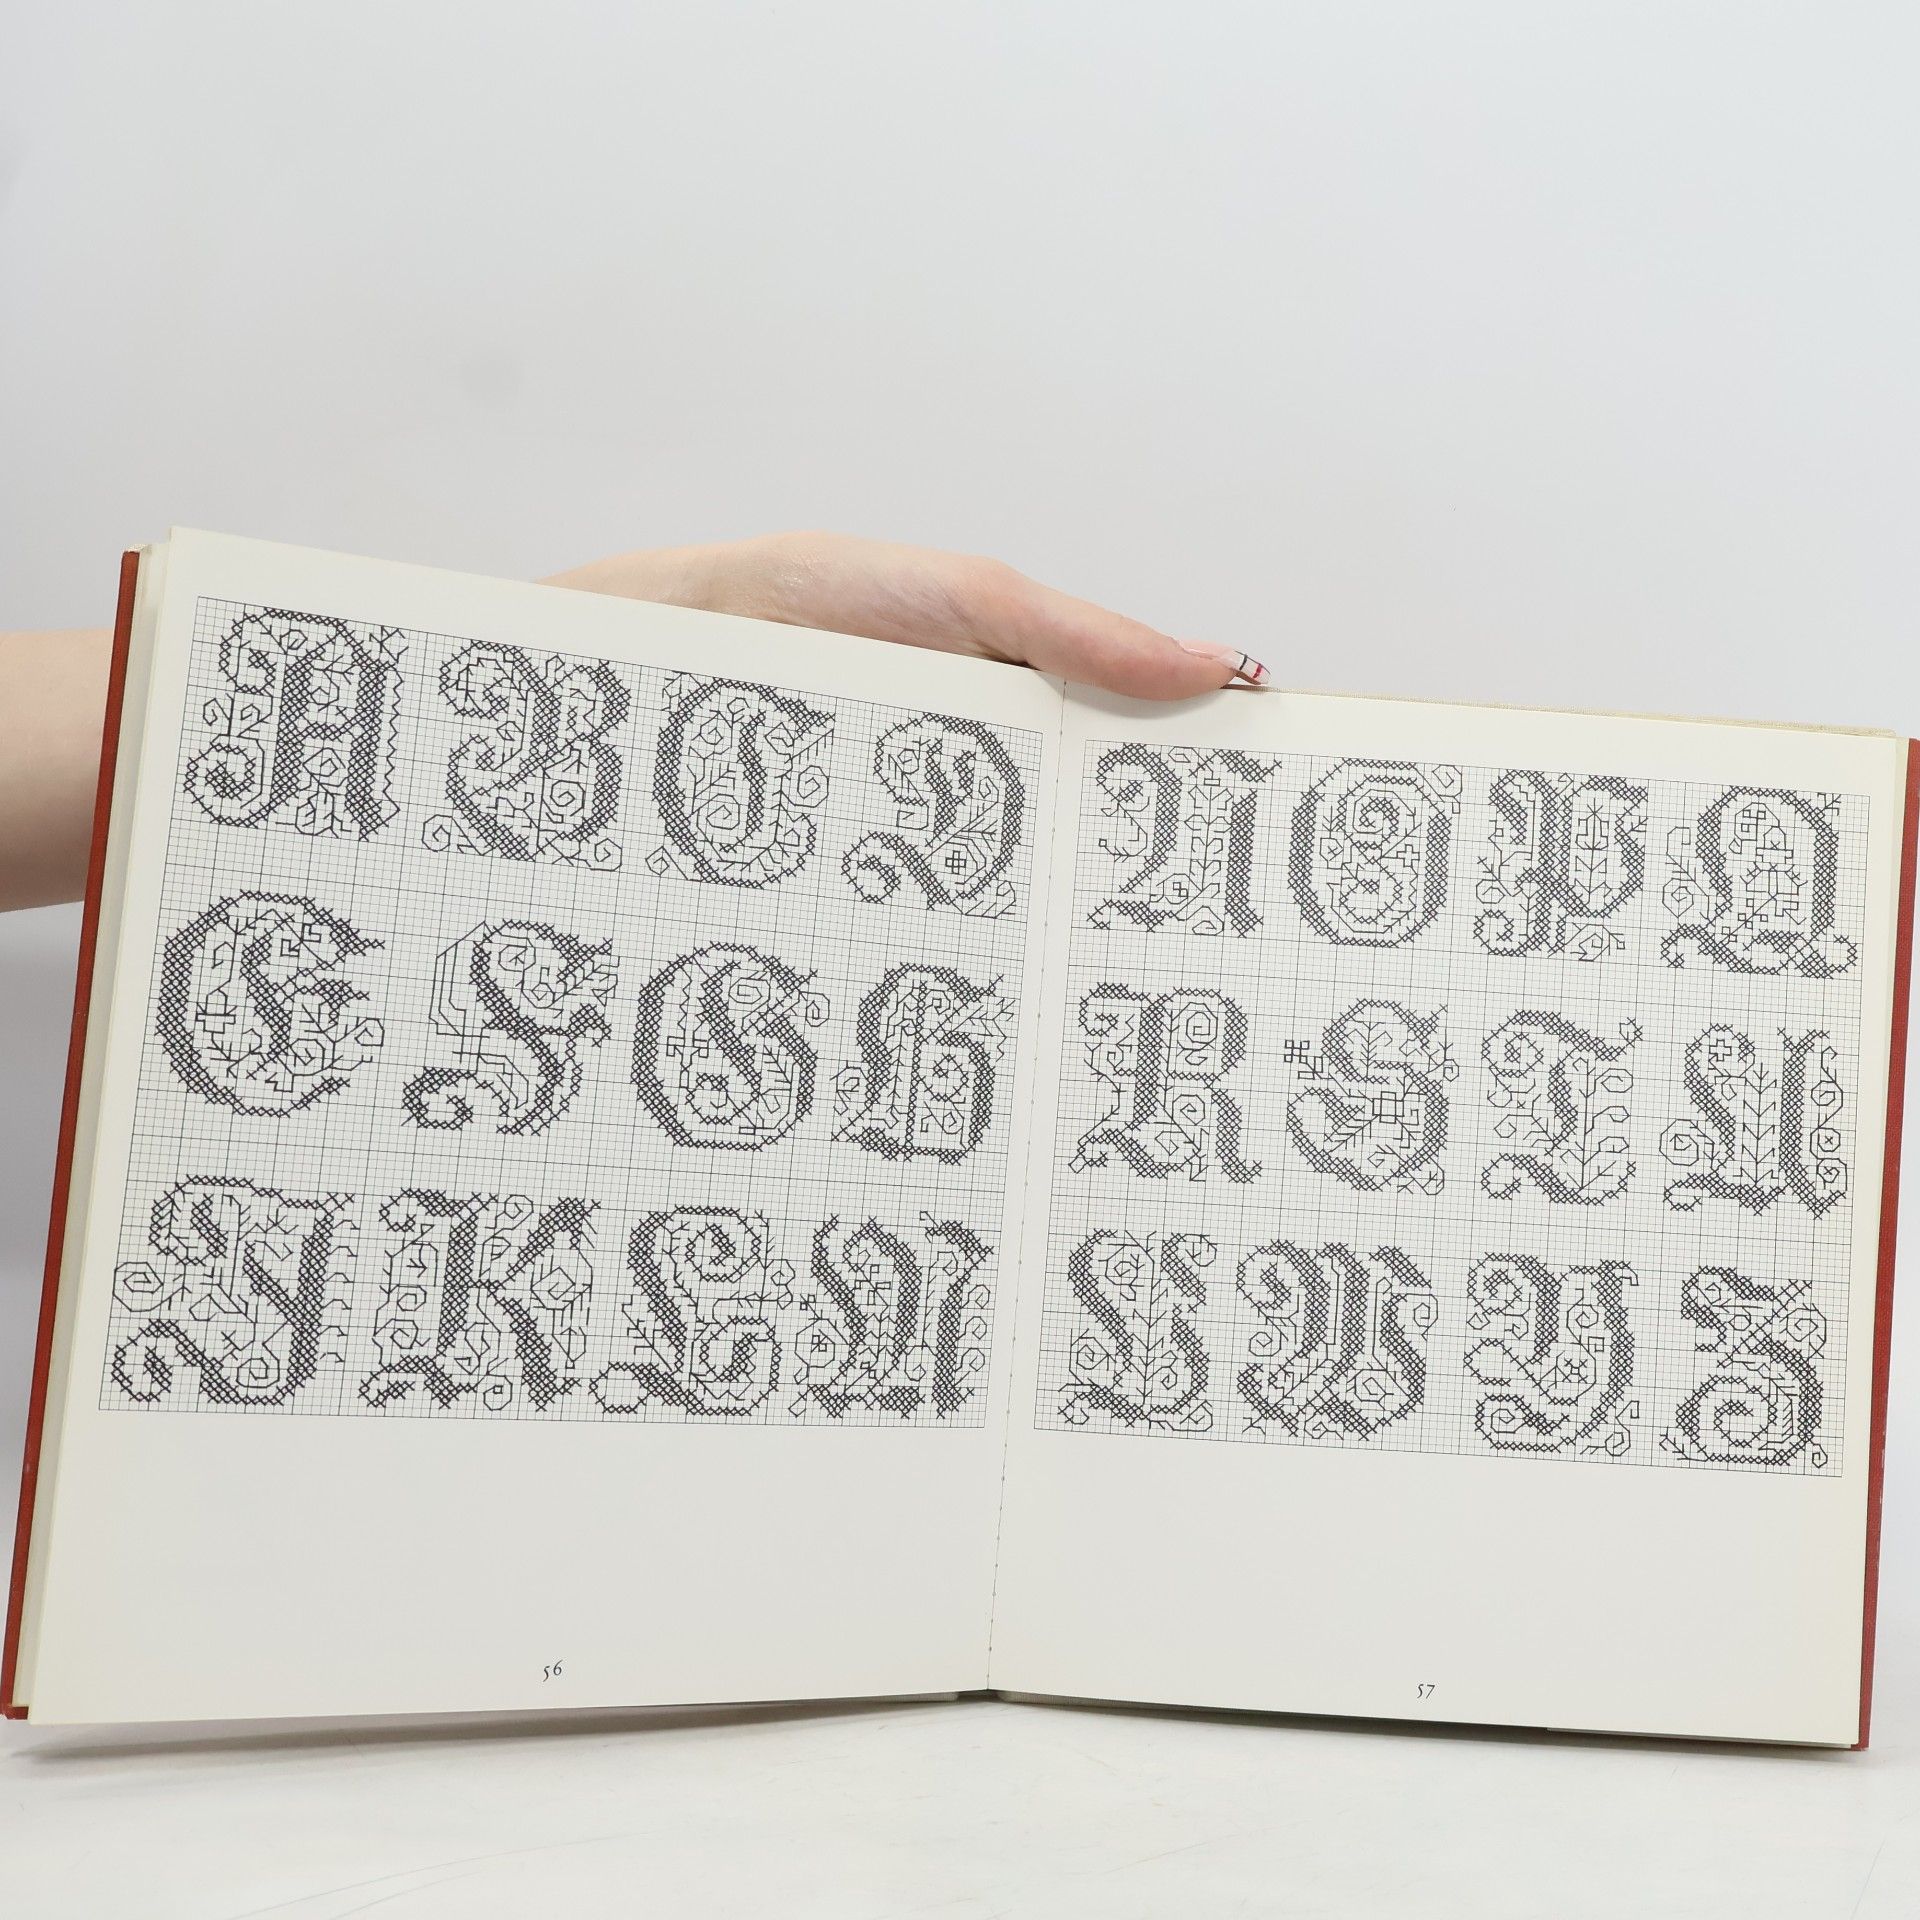 A B C D
E F G H
J K L M
N O P Q
R S T U
V W Y Z
56
57